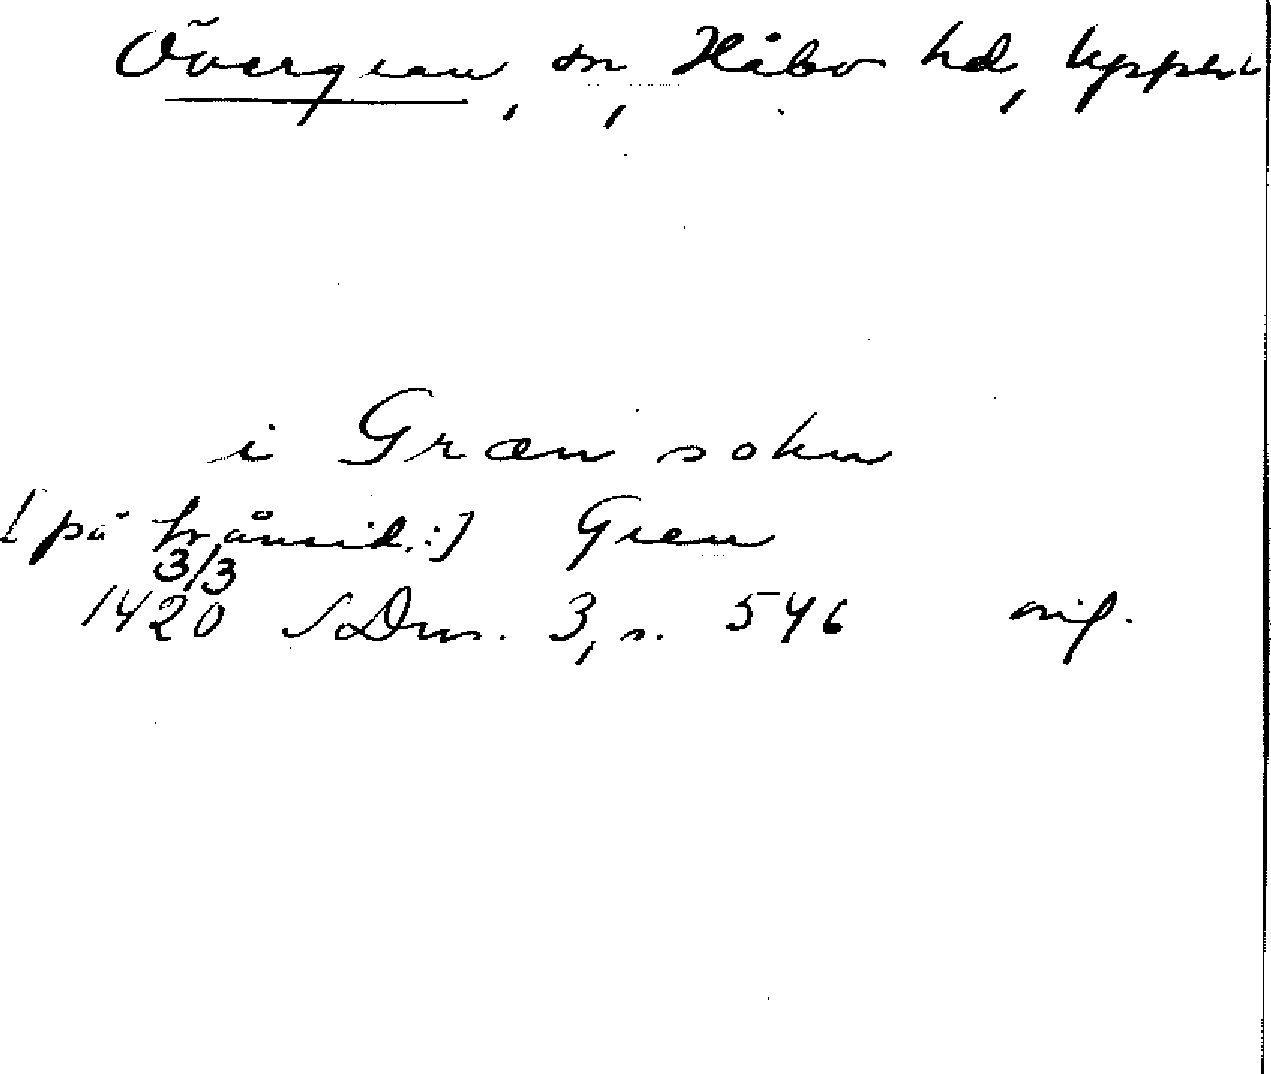 Övergran, sn, Håbo hd, Uppsala
i Græn sokn
[på frånsid.:] Gren
3/3
1420 SDns. 3, s. 546 orig.